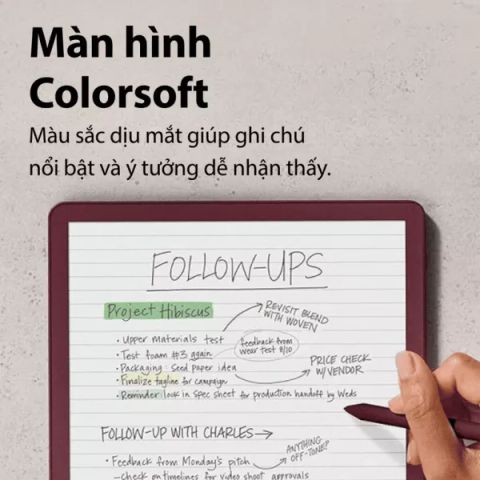 Màn hình
Colorsoft
Màu sắc dịu mắt giúp ghi chú
nổi bật và ý tưởng dễ nhận thấy.
FOLLOW-UPS
Project Hibiscus
REVISIT BLEND
WITH WOVEN
• Upper materials test
• Test foam #3 again
feedback from
wear test 8/10
• Packaging: Seed paper idea
PRICE CHECK
W/VENDOR
• Finalize tagline for campaign
• Reminder: lock in spec sheet for production handoff by Weds
FOLLOW-UP WITH CHARLES→
ANYTHING
OFF-TONE?
• Feedback from Monday's pitch
—Check on timelines for video shoot approvals